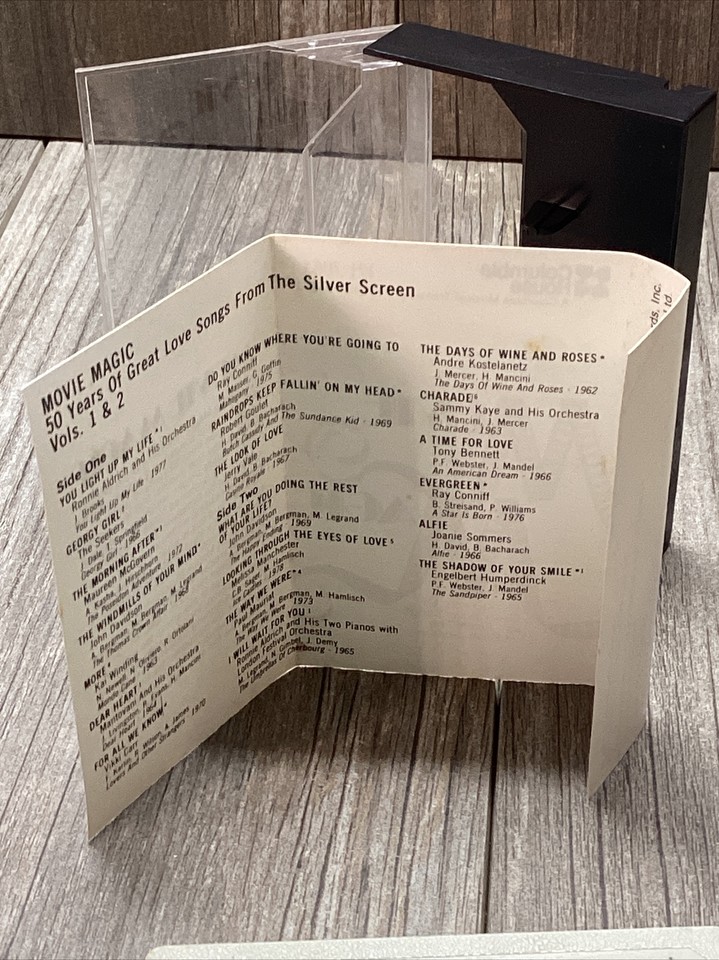 MOVIE MAGIC
50 Years Of Great Love Songs From The Silver Screen
Vols. 1 & 2
Side One
YOU LIGHT UP MY LIFE *¹
Ronnie Aldrich and His Orchestra
J. Brooks
You Light Up My Life · 1977
GEORGY GIRL
The Seekers
J. Dale, T. Springfield
Georgy Girl · 1966
THE MORNING AFTER*
Maureen McGovern
A. Kasha, J. Hirschhorn
The Poseidon Adventure · 1972
THE WINDMILLS OF YOUR MIND*
John Davidson
A. Bergman, M. Bergman, M. Legrand
The Thomas Crown Affair · 1968
MORE
Kai Winding
N. Newell, M. Ciorciolini, R. Oliviero, R. Ortolani
Mondo Cane · 1963
DEAR HEART
Mantovani and His Orchestra
J. Livingston, R. Evans, H. Mancini
Dear Heart · 1964
FOR ALL WE KNOW*
Vikki Carr
F. Karlin, R. Wilson, A. James
Lovers And Other Strangers · 1970
DO YOU KNOW WHERE YOU'RE GOING TO
Ray Conniff
M. Masser, G. Goffin
Mahogany · 1975
RAINDROPS KEEP FALLIN' ON MY HEAD*
Robert Goulet
H. David, B. Bacharach
Butch Cassidy And The Sundance Kid · 1969
THE LOOK OF LOVE
Jerry Vale
H. David, B. Bacharach
Casino Royale · 1967
Side Two
WHAT ARE YOU DOING THE REST
OF YOUR LIFE?
John Davidson
A. Bergman, M. Bergman, M. Legrand
1969
LOOKING THROUGH THE EYES OF LOVE⁵
Melissa Manchester
C.B. Sager, M. Hamlisch
Ice Castles · 1978
THE WAY WE WERE*⁴
Paul Mauriat
A. Bergman, M. Bergman, M. Hamlisch
The Way We Were · 1973
I WILL WAIT FOR YOU
Ronnie Aldrich and His Two Pianos with
London Festival Orchestra
M. Legrand, N. Gimbel, J. Demy
The Umbrellas Of Cherbourg · 1965
THE DAYS OF WINE AND ROSES*
Andre Kostelanetz
J. Mercer, H. Mancini
The Days Of Wine And Roses · 1962
CHARADE
Sammy Kaye and His Orchestra
H. Mancini, J. Mercer
Charade · 1963
A TIME FOR LOVE
Tony Bennett
P.F. Webster, J. Mandel
An American Dream · 1966
EVERGREEN*
Ray Conniff
B. Streisand, P. Williams
A Star Is Born · 1976
ALFIE
Joanie Sommers
H. David, B. Bacharach
Alfie · 1966
THE SHADOW OF YOUR SMILE*¹
Engelbert Humperdinck
P.F. Webster, J. Mandel
The Sandpiper · 1965
Inc.